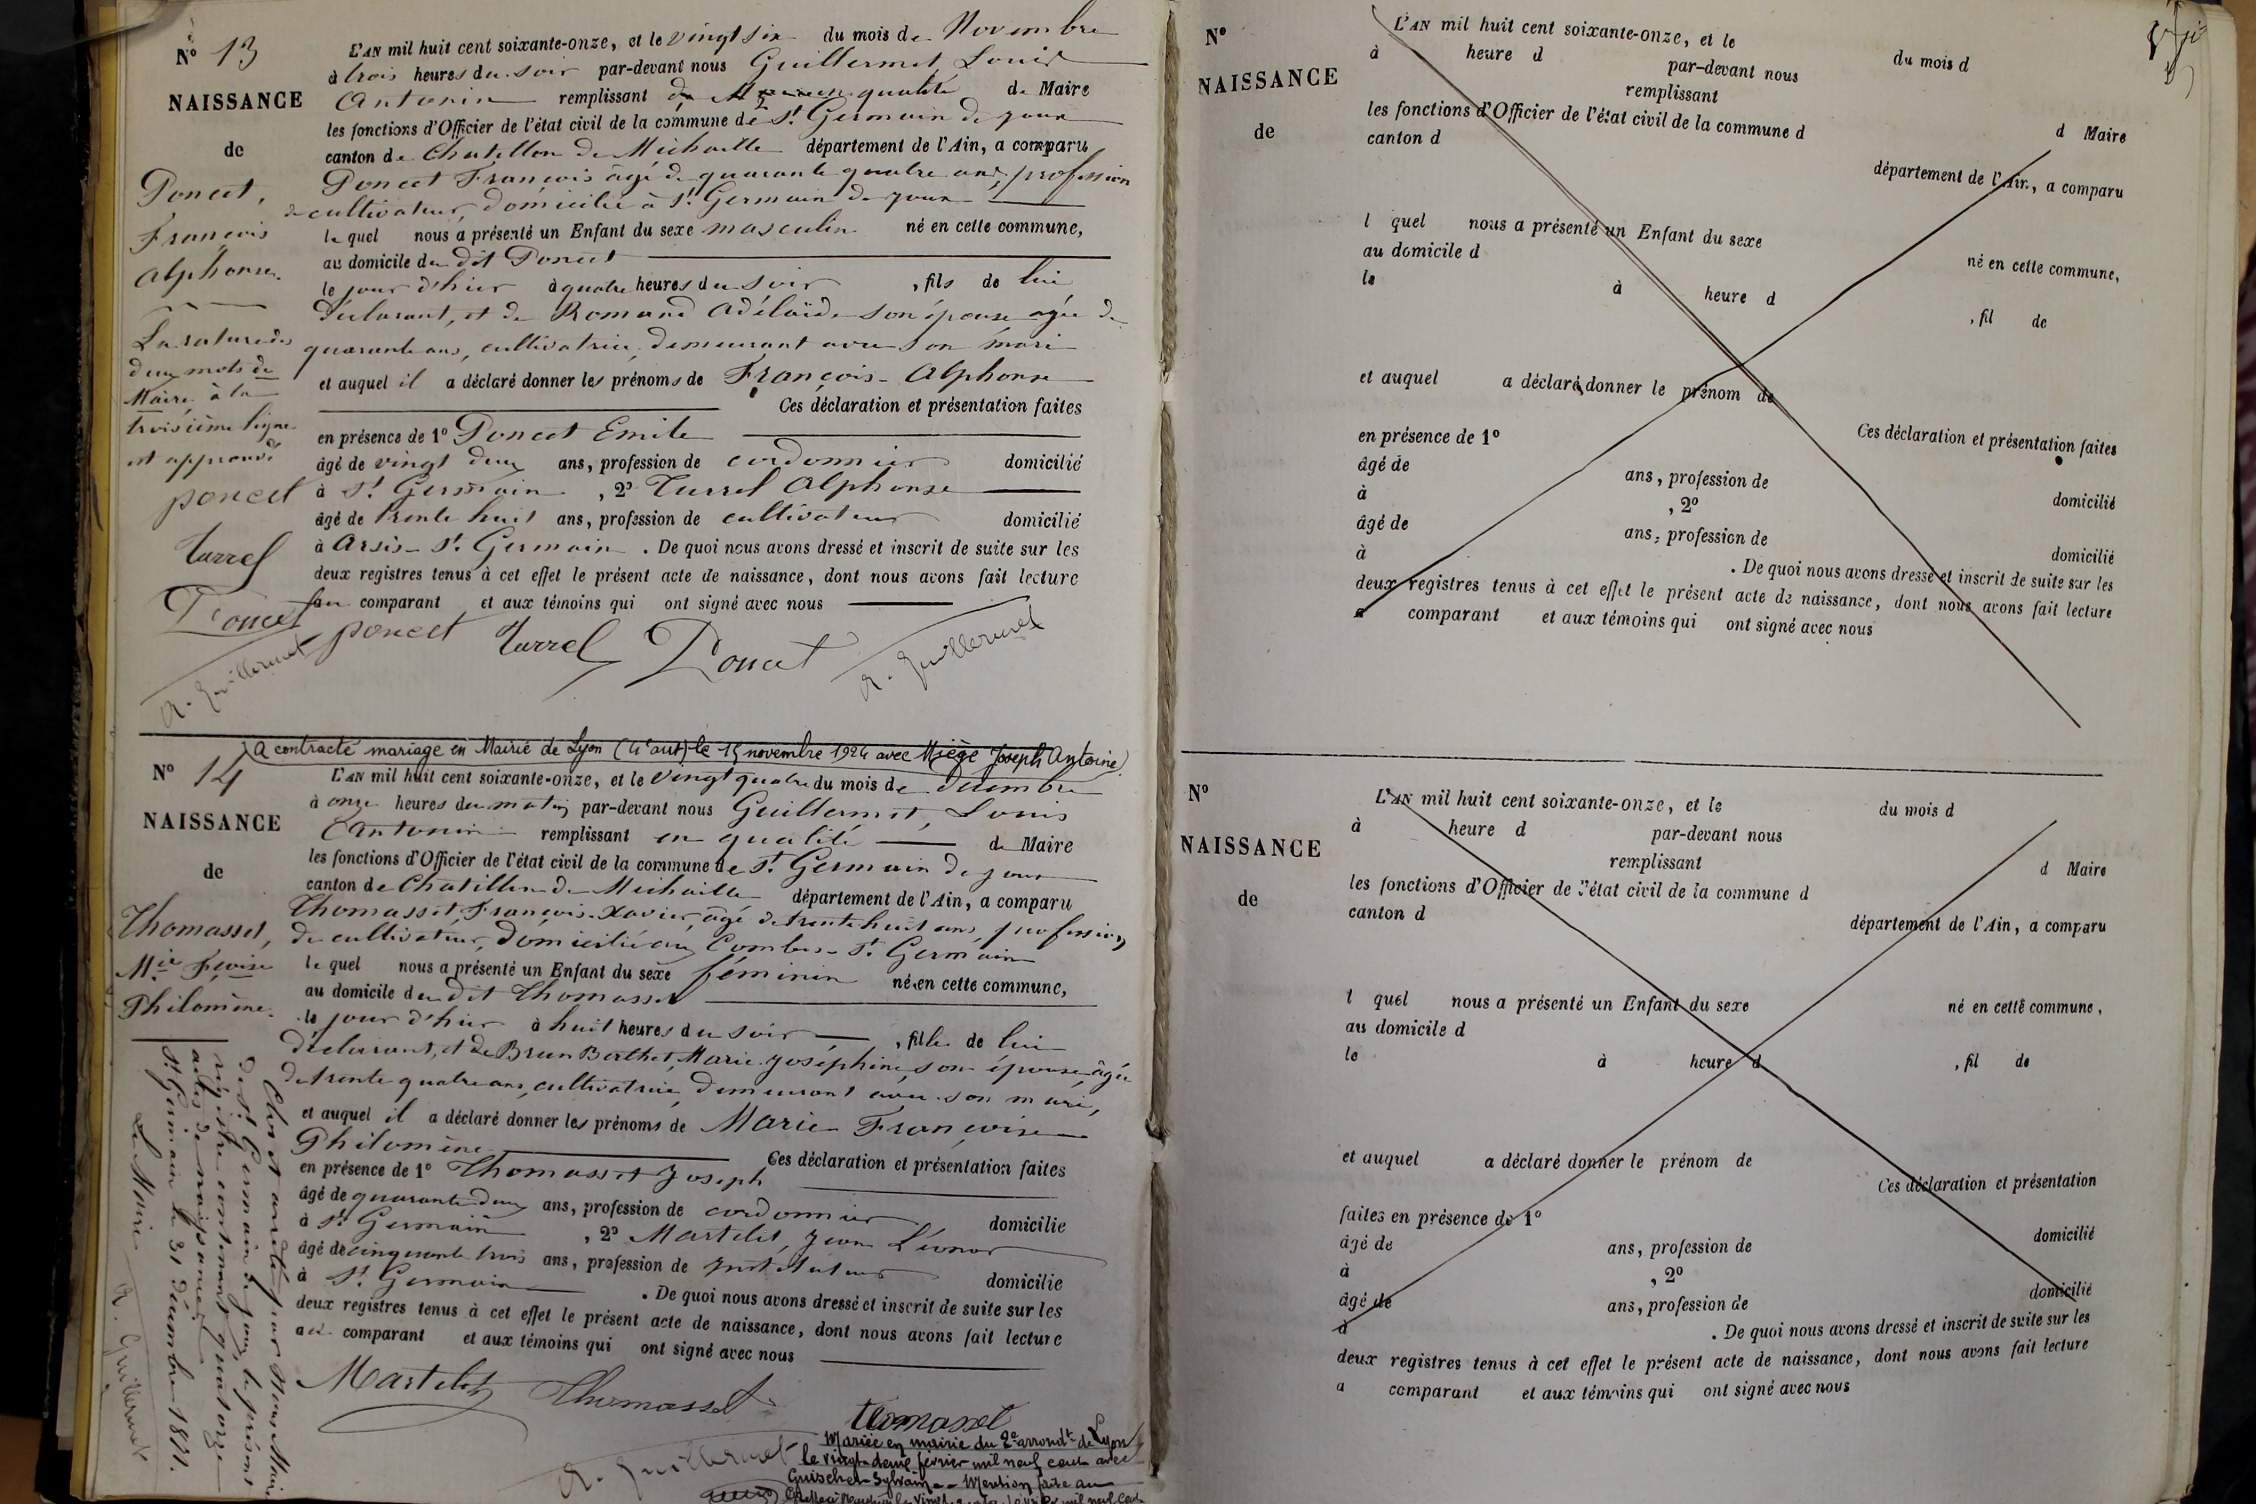 N° 13
NAISSANCE
de
Poncet,
François
Alphonse.
La rature des
deux mots de
Maire à la
troisième ligne
est approuvé
poncet
Turrel
Poncet
A. Guillermet
L'AN mil huit cent soixante-onze, et le vingt six du mois de Novembre
à trois heures du soir par-devant nous Guillermet, Louis
Antonin remplissant en qualité de Maire
les fonctions d'Officier de l'état civil de la commune de St Germain de joux
canton de Chatillon de Michaille département de l'Ain, a comparu
Poncet François âgé de quarante quatre ans, profession
de cultivateur, domicilié à St Germain de joux
le quel nous a présenté un Enfant du sexe masculin né en cette commune,
au domicile du dit Poncet
le jour d'hier à quatre heures du soir , fils de lui
déclarant, et de Romand Adélaïde son épouse âgée de
quarante ans, cultivatrice, demeurant avec son mari
et auquel il a déclaré donner les prénoms de François Alphonse
Ces déclaration et présentation faites
en présence de 1° Poncet Emile
âgé de vingt deux ans, profession de cordonnier domicilié
à St Germain , 2° Turrel Alphonse
âgé de trente huit ans, profession de cultivateur domicilié
à St Germain . De quoi nous avons dressé et inscrit de suite sur les
deux registres tenus à cet effet le présent acte de naissance, dont nous avons fait lecture
au comparant et aux témoins qui ont signé avec nous
poncet Turrel Poncet A. Guillermet
A contracté mariage en Mairie de Lyon (4e arrt) le 15 novembre 1924 avec Miège Joseph Antoine.
N° 14
NAISSANCE
de
Thomasset,
Mie Fçoise
Philomène.
L'AN mil huit cent soixante-onze, et le vingt quatre du mois de décembre
à onze heures du matin par-devant nous Guillermet, Louis
Antonin remplissant en qualité de Maire
les fonctions d'Officier de l'état civil de la commune de St Germain de joux
canton de Chatillon de Michaille département de l'Ain, a comparu
Thomasset, François-Xavier, âgé de trente huit ans, profession
de cultivateur, domicilié aux Combes St Germain
le quel nous a présenté un Enfant du sexe féminin née en cette commune,
au domicile du dit Thomasset
le jour d'hier à huit heures du soir , fille de lui
déclarant, et de Brun Berthet, Marie Joséphine, son épouse âgée
de trente quatre ans, cultivatrice, demeurant avec son mari,
et auquel il a déclaré donner les prénoms de Marie Françoise
Philomène Ces déclaration et présentation faites
en présence de 1° Thomasset Joseph
âgé de quarante deux ans, profession de cordonnier domicilié
à St Germain , 2° Martelet, Jean Léonor
âgé de cinquante trois ans, profession de instituteur domicilié
à St Germain . De quoi nous avons dressé et inscrit de suite sur les
deux registres tenus à cet effet le présent acte de naissance, dont nous avons fait lecture
au comparant et aux témoins qui ont signé avec nous
Martelet Thomasset
A. Guillermet
Mariée en mairie du 2e arrondt de Lyon
le vingt-deux février mil neuf cent avec
Sylvain - Mention faite au
Clos et arrêté par Nous Maire
de St Germain de joux, le présent
registre contenant quatorze
actes de naissance
St Germain le 31 décembre 1871.
Le Maire
A. Guillermet
N°
NAISSANCE
de
L'AN mil huit cent soixante-onze, et le du mois d
à heure d par-devant nous
remplissant d Maire
les fonctions d'Officier de l'état civil de la commune d
canton d département de l'Ain, a comparu
l quel nous a présenté un Enfant du sexe né en cette commune,
au domicile d
le à heure d , fil de
et auquel a déclaré donner le prénom de
Ces déclaration et présentation faites
en présence de 1°
âgé de ans, profession de domicilié
à , 2°
âgé de ans, profession de domicilié
à . De quoi nous avons dressé et inscrit de suite sur les
deux registres tenus à cet effet le présent acte de naissance, dont nous avons fait lecture
a comparant et aux témoins qui ont signé avec nous
N°
NAISSANCE
de
L'AN mil huit cent soixante-onze, et le du mois d
à heure d par-devant nous
remplissant d Maire
les fonctions d'Officier de l'état civil de la commune d
canton d département de l'Ain, a comparu
l quel nous a présenté un Enfant du sexe né en cette commune,
au domicile d
le à heure d , fil de
et auquel a déclaré donner le prénom de
Ces déclaration et présentation
faites en présence de 1°
âgé de ans, profession de domicilié
à , 2°
âgé de ans, profession de domicilié
à . De quoi nous avons dressé et inscrit de suite sur les
deux registres tenus à cet effet le présent acte de naissance, dont nous avons fait lecture
a comparant et aux témoins qui ont signé avec nous